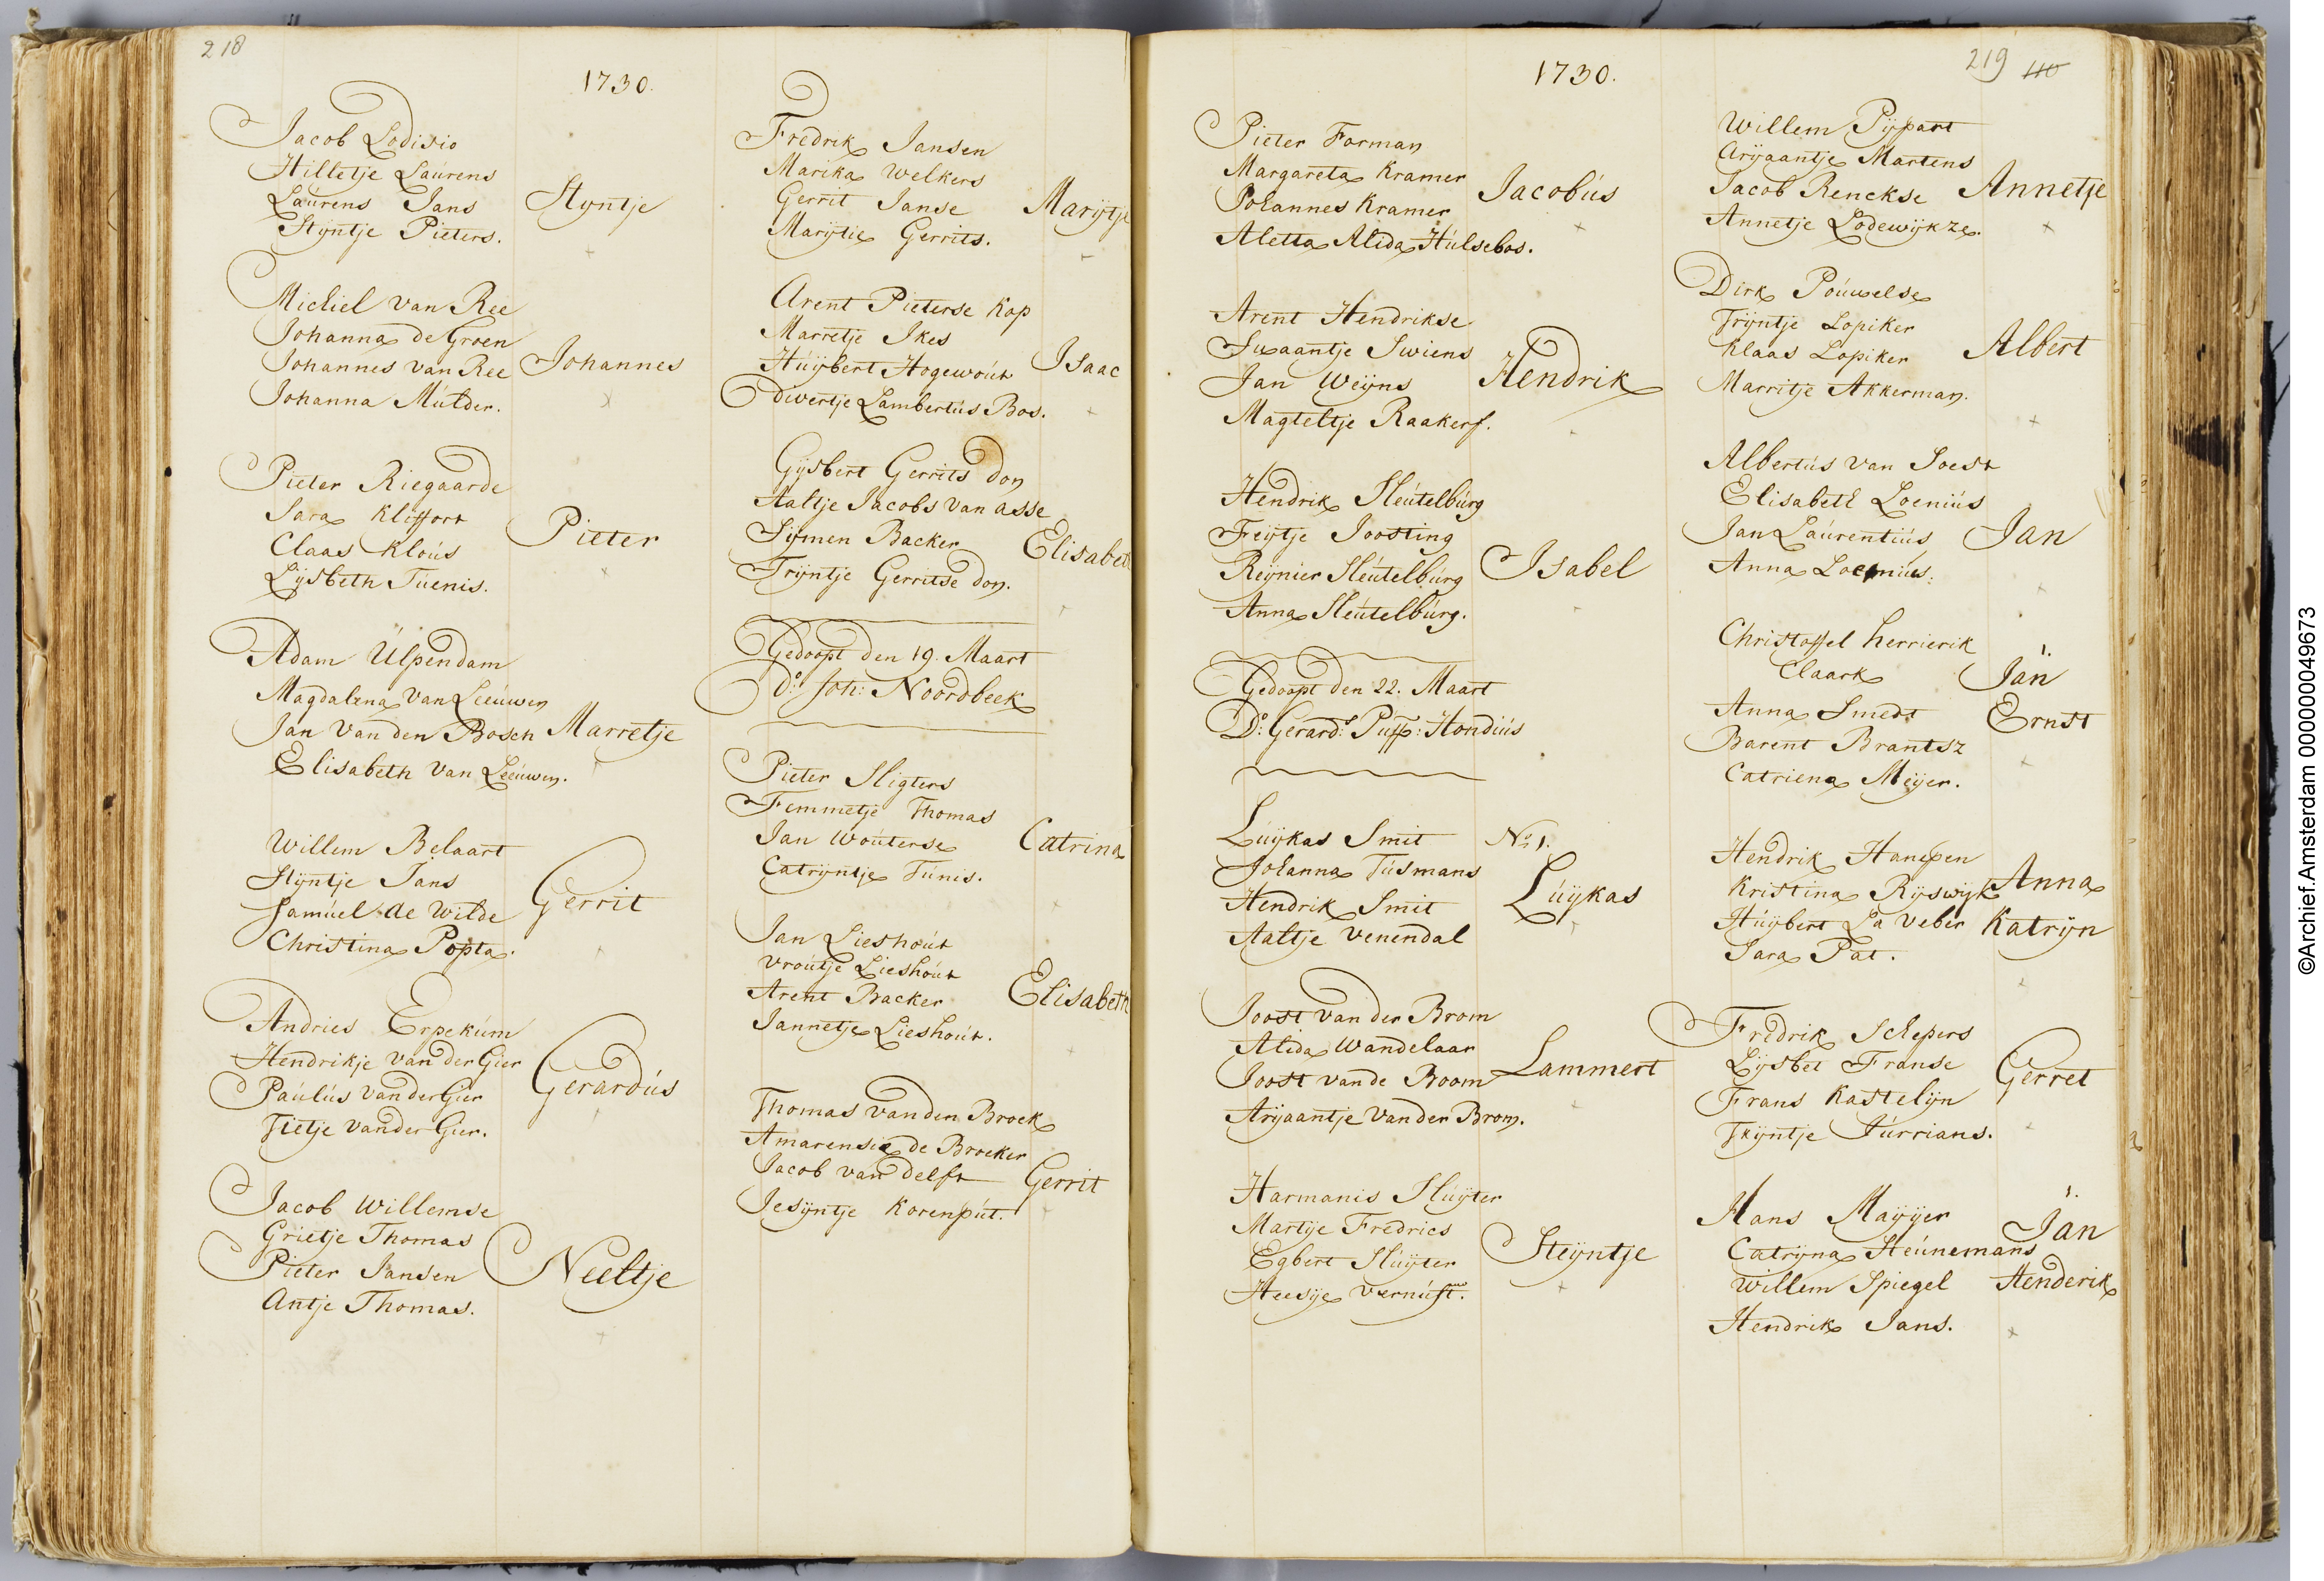 218
1730.
Jacob Lodisio
Hilletje Laurens
Laurens Jans
Styntje Pieters.
Styntje
Michiel van Ree
Johanna de Groen
Johannes van Ree
Johanna Mulder.
Johannes
Pieter Riegaarde
Sara Kliffort
Claas Klous
Lijsbeth Tuenis.
Pieter
Adam Ulpendam
Magdalena van Leeuwen
Jan van den Bosch
Elisabeth van Leeuwen.
Marretje
Willem Belaart
Stijntje Jans
Samuel de Wilde
Christina Popta.
Gerrit
Andries Erpekum
Hendrikje van der Gier
Paulus van der Gier
Fietje van der Gier.
Gerardus
Jacob Willemse
Grietje Thomas
Pieter Jansen
Antje Thomas.
Neeltje
Fredrik Jansen
Marika Welkers
Gerrit Janse
Marijtie Gerrits.
Marijtje
Arent Pieterse Kop
Marretje Ikes
Huijbert Hogewout
Divertje Lambertus Bos.
Isaac
Gijsbert Gerrits don
Aaltje Jacobs van asse
Sijmen Backer
Trijntje Gerritse don.
Elisabet
Gedoopt den 19. Maart
Do: Joh: Noordbeek
Pieter Sligters
Femmetje Thomas
Jan Wouterse
Catrijntje Tunis.
Catrina
Jan Lieshout
Vroutje Lieshout
Arent Backer
Jannetje Lieshout.
Elisabeth
Thomas van den Broek
Amarensia de Broeker
Jacob van delft
Jesijntje Korenput.
Gerrit
219 110
1730.
Pieter Forman
Margareta Kramer
Johannes Kramer
Aletta Alida Hulsebos.
Jacobus
Arent Hendrikse
Swaantje Swiens
Jan Weijns
Magteltje Raakers.
Hendrik
Hendrik Sleutelburg
Feijtje Joosting
Reijnier Sleutelburg
Anna Sleutelburg.
Isabel
Gedoopt den 22. Maart
Do: Gerard: Puff: Hondius
Luijkas Smit
Johanna Tusmans
Hendrik Smit
Aaltje Venendal
No 1.
Luijkas
Joost van der Brom
Alida Wandelaar
Joost van de Boom
Arijaantje van der Brom.
Lammert
Harmanis Sluijter
Martije Fredrics
Egbert Sluijter
Heesije Vernuft.
Steijntje
Willem Pijpart
Arijaantje Martens
Jacob Renckse
Annetje Lodewijkze.
Annetje
Dirk Pouwelse
Trijntje Lopiker
Klaas Lopiker
Marritje Akkerman.
Albert
Albertus van Soest
Elisabeth Loenius
Jan Laurentius
Anna Loenius.
Jan
Christoffel herrierik
Claark
Anna Smedt
Barent Brantsz
Catriena Meijer.
Jan
Ernst
Hendrik Hanepen
Kristina Rijswijk
Huijbert La Veber
Sara Pat.
Anna
Katrijn
Fredrik Schepers
Lijsbet Franse
Frans Kastelijn
Trijntje Jurrians.
Gerret
Hans Maijer
Catrijna Steunemans
Willem Spiegel
Hendrik Jans.
Jan
Henderik
©Archief.Amsterdam 000000049673